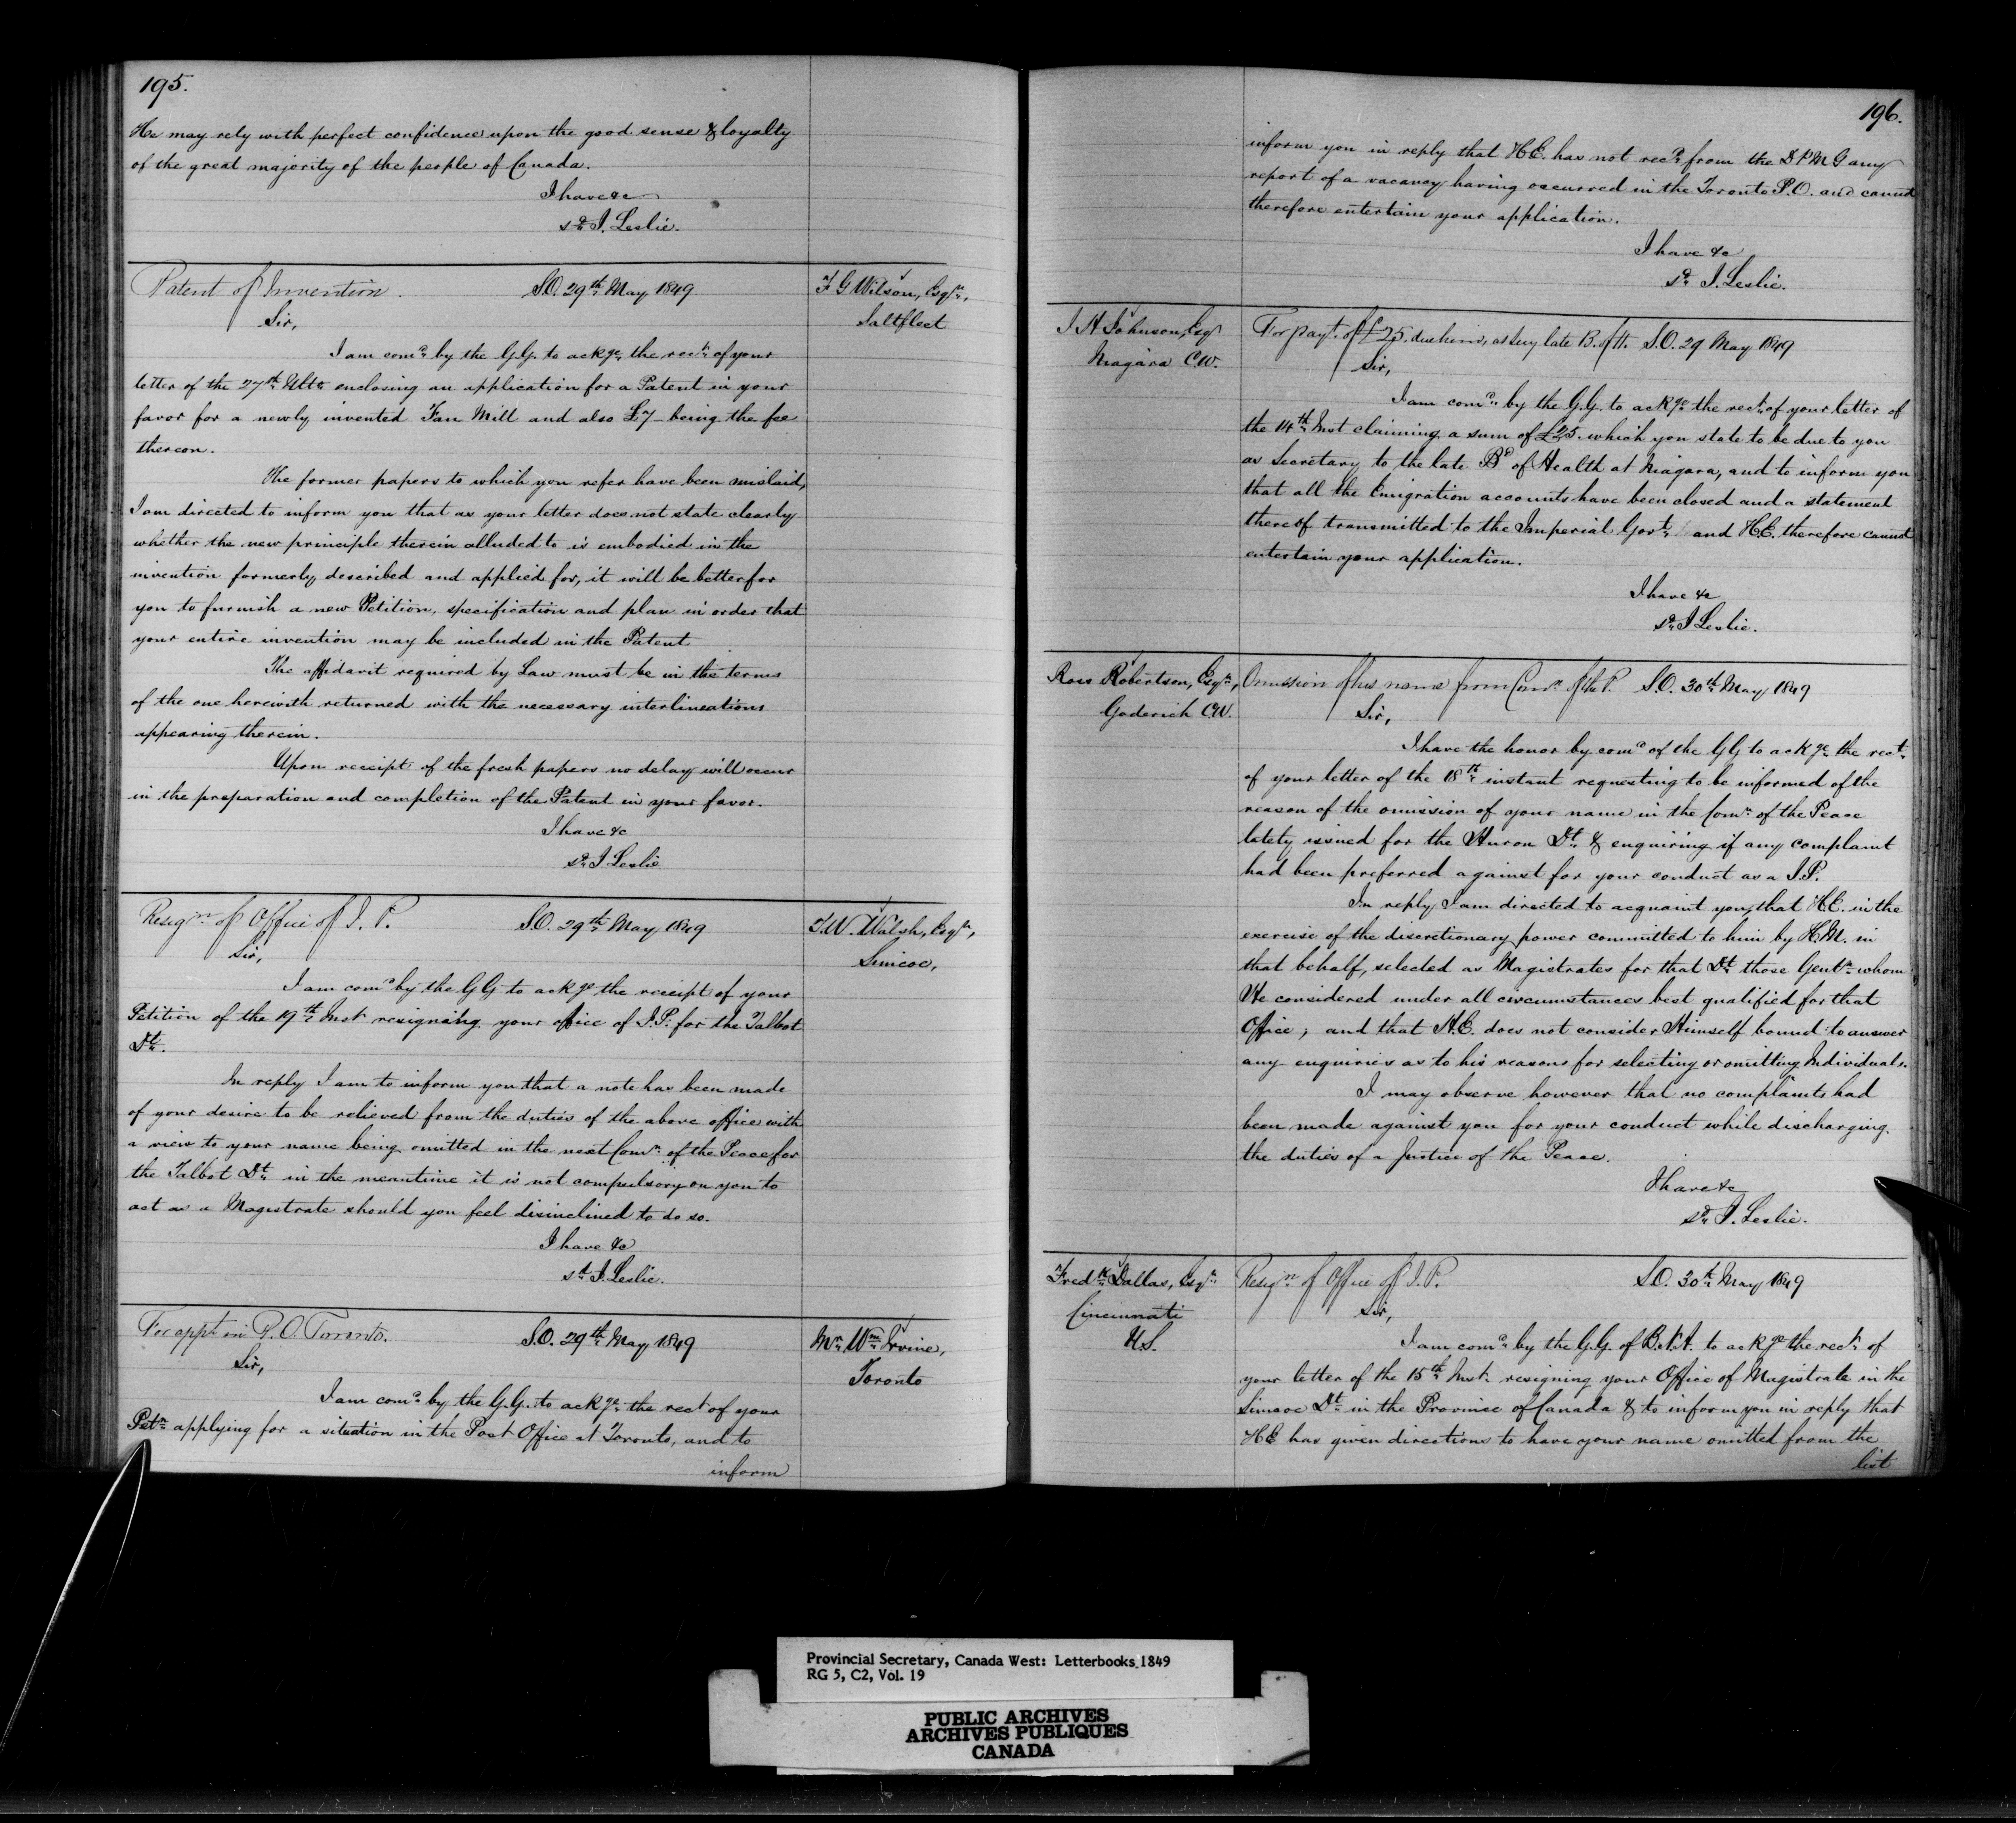 195.
He may rely with perfect confidence upon the good sense & loyalty
of the great majority of the people of Canada.
I have &c
sd. J. Leslie.
Patent of Invention. S.O. 29th May 1849
F G Wilson, Esqre,
Saltfleet
Sir,
I am comd. by the G.G. to ackge. the rect. of your
letter of the 27th Ulto enclosing an application for a Patent in your
favor for a newly invented Fan Mill and also £7 being the fee
thereon.
The former papers to which you refer have been mislaid,
I am directed to inform you that as your letter does not state clearly
whether the new principle therein alluded to is embodied in the
invention formerly described and applied for, it will be better for
you to furnish a new Petition, specification and plan in order that
your entire invention may be included in the Patent
The affidavit required by Law must be in the terms
of the one herewith returned with the necessary interlineations
appearing therein.
Upon receipt of the fresh papers no delay will occur
in the preparation and completion of the Patent in your favor.
I have &c
sd. J. Leslie
Resign of Office of J. P. S.O. 29th May 1849
T.W. Walsh, Esqre,
Simcoe,
Sir,
I am comd by the GG to ackge the receipt of your
Petition of the 19th Inst resigning your office of J.P. for the Talbot
Dt.
In reply I am to inform you that a note has been made
of your desire to be relieved from the duties of the above office with
a view to your name being omitted in the next Comn. of the Peace for
the Talbot Dt. in the meantime it is not compulsory on you to
act as a Magistrate should you feel disinclined to do so.
I have &c
sd J. Leslie.
For appt in P.O. Toronto. S.O. 29th May 1849
Mr. Wm Irvine,
Toronto
Sir,
I am comd. by the G.G. to ackge. the rect of your
Petn. applying for a situation in the Post Office at Toronto, and to
inform
196.
inform you in reply that H.E. has not recd. from the D P M G any
report of a vacancy having occurred in the Toronto P.O. and cannot
therefore entertain your application.
I have &c
sd. J. Leslie.
J A Johnson, Esq
Niagara C.W.
For payt. of £25. due him, as Secy late B. of H. S.O. 29 May 1849
Sir,
I am comd. by the G.G. to ackge the rect. of your letter of
the 14th Inst claiming a sum of £25. which you state to be due to you
as Secretary to the late Bd of Health at Niagara, and to inform you
that all the Emigration accounts have been closed and a statement
thereof transmitted to the Imperial Govt. and H.E. therefore cannot
entertain your application.
I have &c
sd. J Leslie.
Ross Robertson, Esqre,
Goderich C.W.
Omission of his name from Comn. of the P. S.O. 30th May 1849
Sir,
I have the honor by comd of the GG to ackge the rect.
of your letter of the 18th instant requesting to be informed of the
reason of the omission of your name in the Comn. of the Peace
lately issued for the Huron Dt. & enquiring if any complaint
had been preferred against for your conduct as a J.P.
In reply I am directed to acquaint you, that H.E. in the
exercise of the discretionary power committed to him by H.M. in
that behalf, selected as Magistrates for that Dt. those Gentn. whom
He considered under all circumstances best qualified for that
Office; and that H.E. does not consider Himself bound to answer
any enquiries as to his reasons for selecting or omitting Individuals.
I may observe however that no complaints had
been made against you for your conduct while discharging
the duties of a Justice of the Peace.
I have &c
sd. J. Leslie.
Fredk Dallas, Esqre
Cincinnati
U.S.
Resign of Office of J.P. S.O. 30th May 1849
Sir,
I am comd. by the G.G. of B.N.A. to ackge the rect. of
your letter of the 15th Inst. resigning your Office of Magistrate in the
Simcoe Dt. in the Province of Canada & to inform you in reply that
H E has given directions to have your name omitted from the
list
Provincial Secretary, Canada West: Letterbooks 1849
RG 5, C2, Vol. 19
PUBLIC ARCHIVES
ARCHIVES PUBLIQUES
CANADA